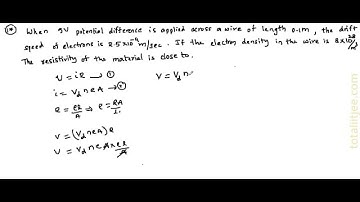 When 5V potential difference is applied across a wire of length 0.1m, the drift
speed of electrons is 2.5×10⁻⁴ m/sec. If the electron density in the wire is 8×10²⁸/m³
The resistivity of the material is close to.
V = iR → ①
V = Vd n
i = Vd n e A → ②
R = ρl/A ⇒ ρ = RA/l
V = (Vd n e A) R
V = Vd n e A × ρl/A
totaliitjee.com